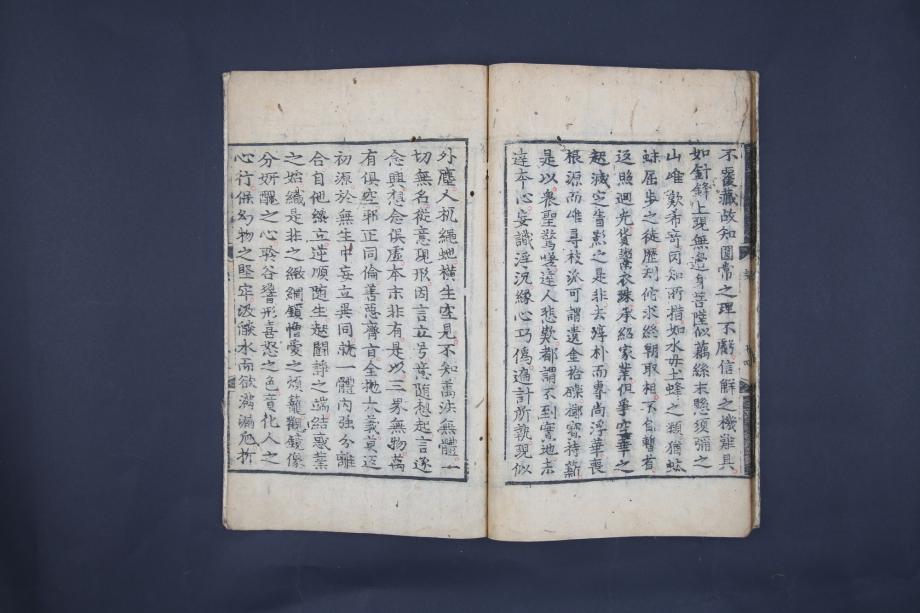 不覆藏故知圓常之理不虧信解之機難具
如針鋒上現無邊身菩薩似藕絲末懸須彌之
山唯歎希奇罔知所措如水母土蜂之類猶
屈步之徒歷劫俯求終朝取相下
返照迴光貨鬻衣珠承紹家業但爭空華之
起滅定昔影之是非去淳朴而專尚浮華喪
根源而唯尋枝派可謂遺金拾礫擲寶持薪
是以衆聖驚嗟達人悲歎都謂不到實地未
達本心妄識浮沉緣心巧僞遍計所執現似
外塵人杌繩虵橫生空見不知萬法無體一
切無名從意現形因言立号意随想起言逐
念興想念俱虛本末非有是以三界無物萬
有俱空邪正同倫善惡齊旨全抛大義莫返
初源於無生中妄立異同就一體內強分離
合自他纔立逆順随生起鬪諍之端結惑業
之始織是非之緻網鎖憎愛之煩籠觀鏡像
分妍醜之心聆谷響形喜怒之色責化人之
心行保幻物之堅牢汲燄水而欲滿漏巵折